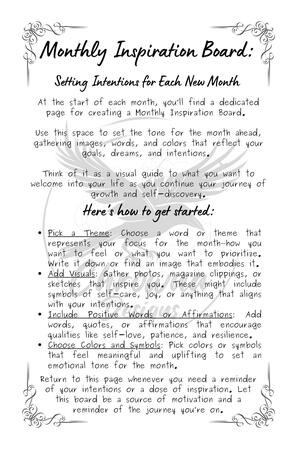 Monthly Inspiration Board:
Setting Intentions for Each New Month
At the start of each month, you'll find a dedicated
page for creating a Monthly Inspiration Board.
Use this space to set the tone for the month ahead,
gathering images, words, and colors that reflect your
goals, dreams, and intentions.
Think of it as a visual guide to what you want to
welcome into your life as you continue your journey of
growth and self-discovery.
Here's how to get started:
• Pick a Theme: Choose a word or theme that
represents your focus for the month—how you
want to feel or what you want to prioritize.
Write it down or find an image that embodies it.
• Add Visuals: Gather photos, magazine clippings, or
sketches that inspire you. These might include
symbols of self-care, joy, or anything that aligns
with your intentions.
• Include Positive Words or Affirmations: Add
words, quotes, or affirmations that encourage
qualities like self-love, patience, and resilience.
• Choose Colors and Symbols: Pick colors or symbols
that feel meaningful and uplifting to set an
emotional tone for the month.
Return to this page whenever you need a reminder
of your intentions or a dose of inspiration. Let
this board be a source of motivation and a
reminder of the journey you're on.